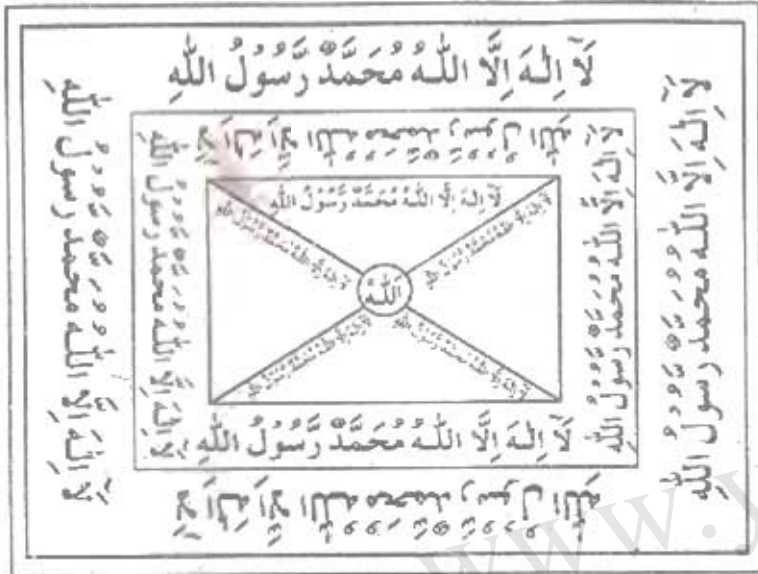 لَآ اِلٰهَ اِلَّا اللّٰهُ مُحَمَّدٌ رَّسُوْلُ اللّٰهِ
لَآ اِلٰهَ اِلَّا اللّٰهُ مُحَمَّدٌ رَّسُوْلُ اللّٰهِ
لَآ اِلٰهَ اِلَّا اللّٰهُ مُحَمَّدٌ رَّسُوْلُ اللّٰهِ
لَآ اِلٰهَ اِلَّا اللّٰهُ مُحَمَّدٌ رَّسُوْلُ اللّٰهِ
لَآ اِلٰهَ اِلَّا اللّٰهُ مُحَمَّدٌ رَّسُوْلُ اللّٰهِ
لَآ اِلٰهَ اِلَّا اللّٰهُ مُحَمَّدٌ رَّسُوْلُ اللّٰهِ
لَآ اِلٰهَ اِلَّا اللّٰهُ مُحَمَّدٌ رَّسُوْلُ اللّٰهِ
لَآ اِلٰهَ اِلَّا اللّٰهُ مُحَمَّدٌ رَّسُوْلُ اللّٰهِ
لَآ اِلٰهَ اِلَّا اللّٰهُ مُحَمَّدٌ رَّسُوْلُ اللّٰهِ
اَللّٰهُ
لَآ اِلٰهَ اِلَّا اللّٰهُ مُحَمَّدٌ رَّسُوْلُ اللّٰهِ
لَآ اِلٰهَ اِلَّا اللّٰهُ مُحَمَّدٌ رَّسُوْلُ اللّٰهِ
لَآ اِلٰهَ اِلَّا اللّٰهُ مُحَمَّدٌ رَّسُوْلُ اللّٰهِ
لَآ اِلٰهَ اِلَّا اللّٰهُ مُحَمَّدٌ رَّسُوْلُ اللّٰهِ